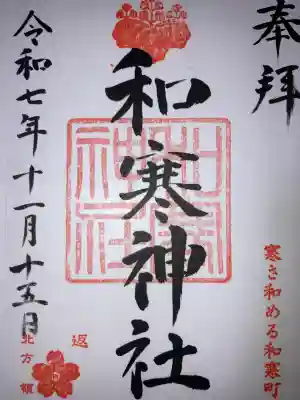 奉拝
寒さ和める和寒町
和寒神社
令和七年十一月十五日
北方領
返